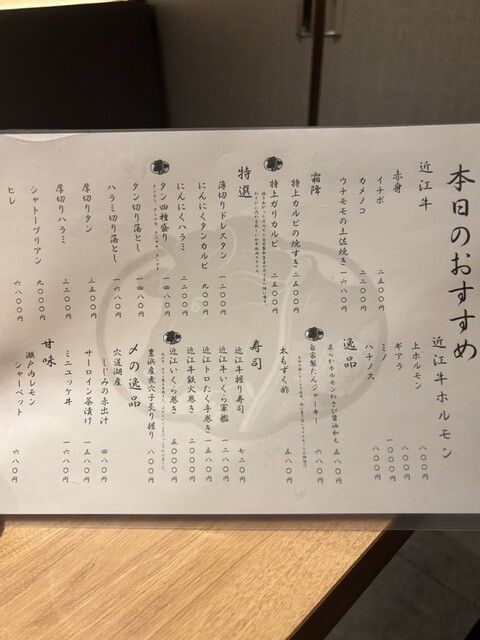 本日のおすすめ
近江牛
赤身
イチボ 二五〇〇円
カメノコ 二二〇〇円
ウチモモの土佐焼き 一六八〇円
霜降
特上カルビの焼すき 二五〇〇円
特上ガリカルビ 二五〇〇円
特選
薄切りドレスタン 一三〇〇円
にんにくタンカルビ 九〇〇円
にんにくハラミ 二二〇〇円
タン四種盛り 一四八〇円
タン切り落とし 一四八〇円
ハラミ切り落とし 一六八〇円
厚切りタン 三五〇〇円
厚切りハラミ 三二〇〇円
シャトーブリアン 九〇〇〇円
ヒレ 六八〇〇円
近江牛ホルモン
上ホルモン 八〇〇円
ギアラ 八〇〇円
ミノ 一〇〇〇円
ハチノス 八〇〇円
逸品
柔らかホルモンわさび醤油和え 五八〇円
自家製たんジャーキー 六八〇円
太もずく酢 五八〇円
寿司
近江牛握り寿司 七二〇円
近江牛いくら軍艦 一二八〇円
近江トロたく手巻き 一五八〇円
近江牛鉄火巻き 二八〇〇円
近江いくら巻き 五〇〇〇円
豊浜産煮穴子炙り握り 八〇〇円
〆の逸品
宍道湖産
しじみの赤出汁 四八〇円
サーロイン茶漬け 一五八〇円
ミニユッケ丼 一六八〇円
甘味
瀬戸内レモン
シャーベット 六八〇円